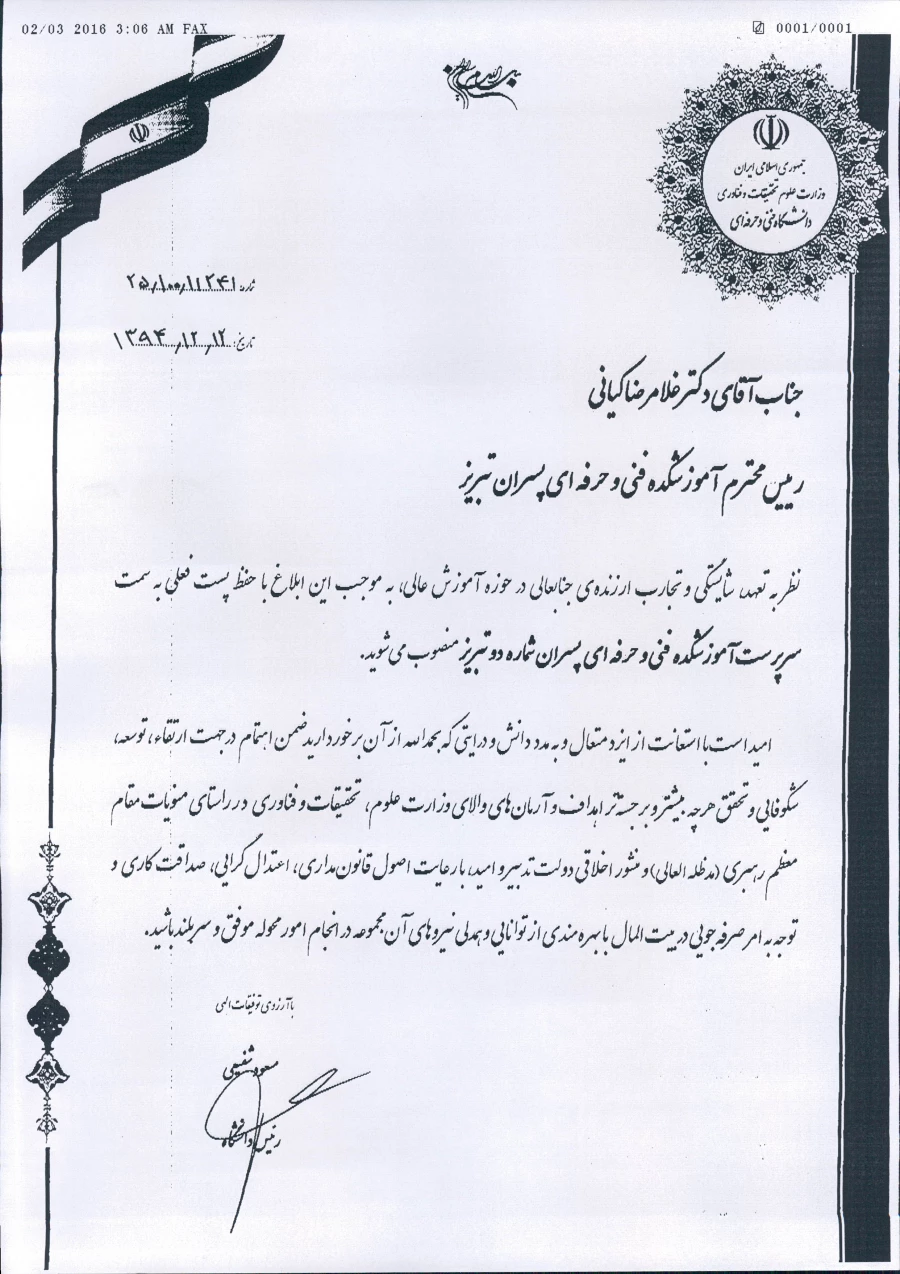 02/03 2016 3:06 AM FAX 0001/0001
جمهوری اسلامی ایران
وزارت علوم تحقیقات و فناوری
دانشگاه فنی و حرفه‌ای
شماره: ۲۵/۱۰۰/۱۱۲۴۱
تاریخ: ۱۳۹۴/۱۲/۱۲
جناب آقای دکتر غلامرضا کیانی
رییس محترم آموزشکده فنی و حرفه ای پسران تبریز
نظر به تعهد، شایستگی و تجارب ارزنده‌ی جنابعالی در حوزه آموزش عالی، به موجب این ابلاغ با حفظ پست فعلی به سمت
سرپرست آموزشکده فنی و حرفه ای پسران شماره دو تبریز منصوب می شوید.
امید است با استعانت از ایزد متعال و به مدد دانش و درایتی که بحمدالله از آن برخوردارید ضمن اهتمام در جهت ارتقاء، توسعه،
شکوفایی و تحقق هرچه بیشتر و برجسته‌تر اهداف و آرمان‌های والای وزارت علوم، تحقیقات و فناوری در راستای منویات مقام
معظم رهبری (مدظله العالی) و منشور اخلاقی دولت تدبیر و امید، با رعایت اصول قانون‌مداری، اعتدال گرایی، صداقت کاری و
توجه به امر صرفه جویی در بیت المال با بهره مندی از توانایی و همدلی نیروهای آن مجموعه در انجام امور محوله موفق و سربلند باشید.
با آرزوی توفیقات الهی
مسعود شفیعی
رئیس دانشگاه